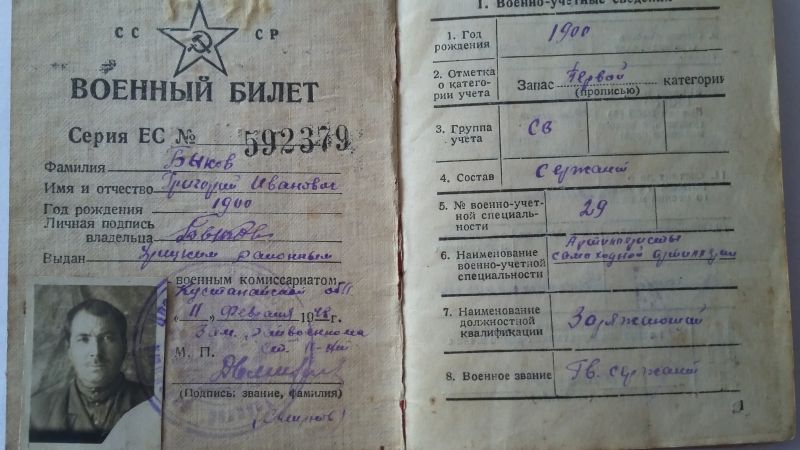 СС СР
ВОЕННЫЙ БИЛЕТ
Серия ЕС № 592379
Фамилия Быков
Имя и отчество Григорий Иванович
Год рождения 1900
Личная подпись
владельца
Выдан Урицким районным
военным комиссариатом
Кустанайской обл
„11„ Февраля 1948г.
Зам.
М. П.
(Подпись: звание, фамилия)
1. Военно-учетные сведения
1. Год рождения
1900
2. Отметка о катего-
рии учета
Запас Первой категории
(прописью)
3. Группа учета
СВ
4. Состав
Сержант
5. № военно-учет-
ной специаль-
ности
29
6. Наименование
военно-учетной
специальности
Артиллеристы
самоходной артиллерии
7. Наименование
должностной
квалификации
Заряжающий
8. Военное звание
Гв. сержант
1